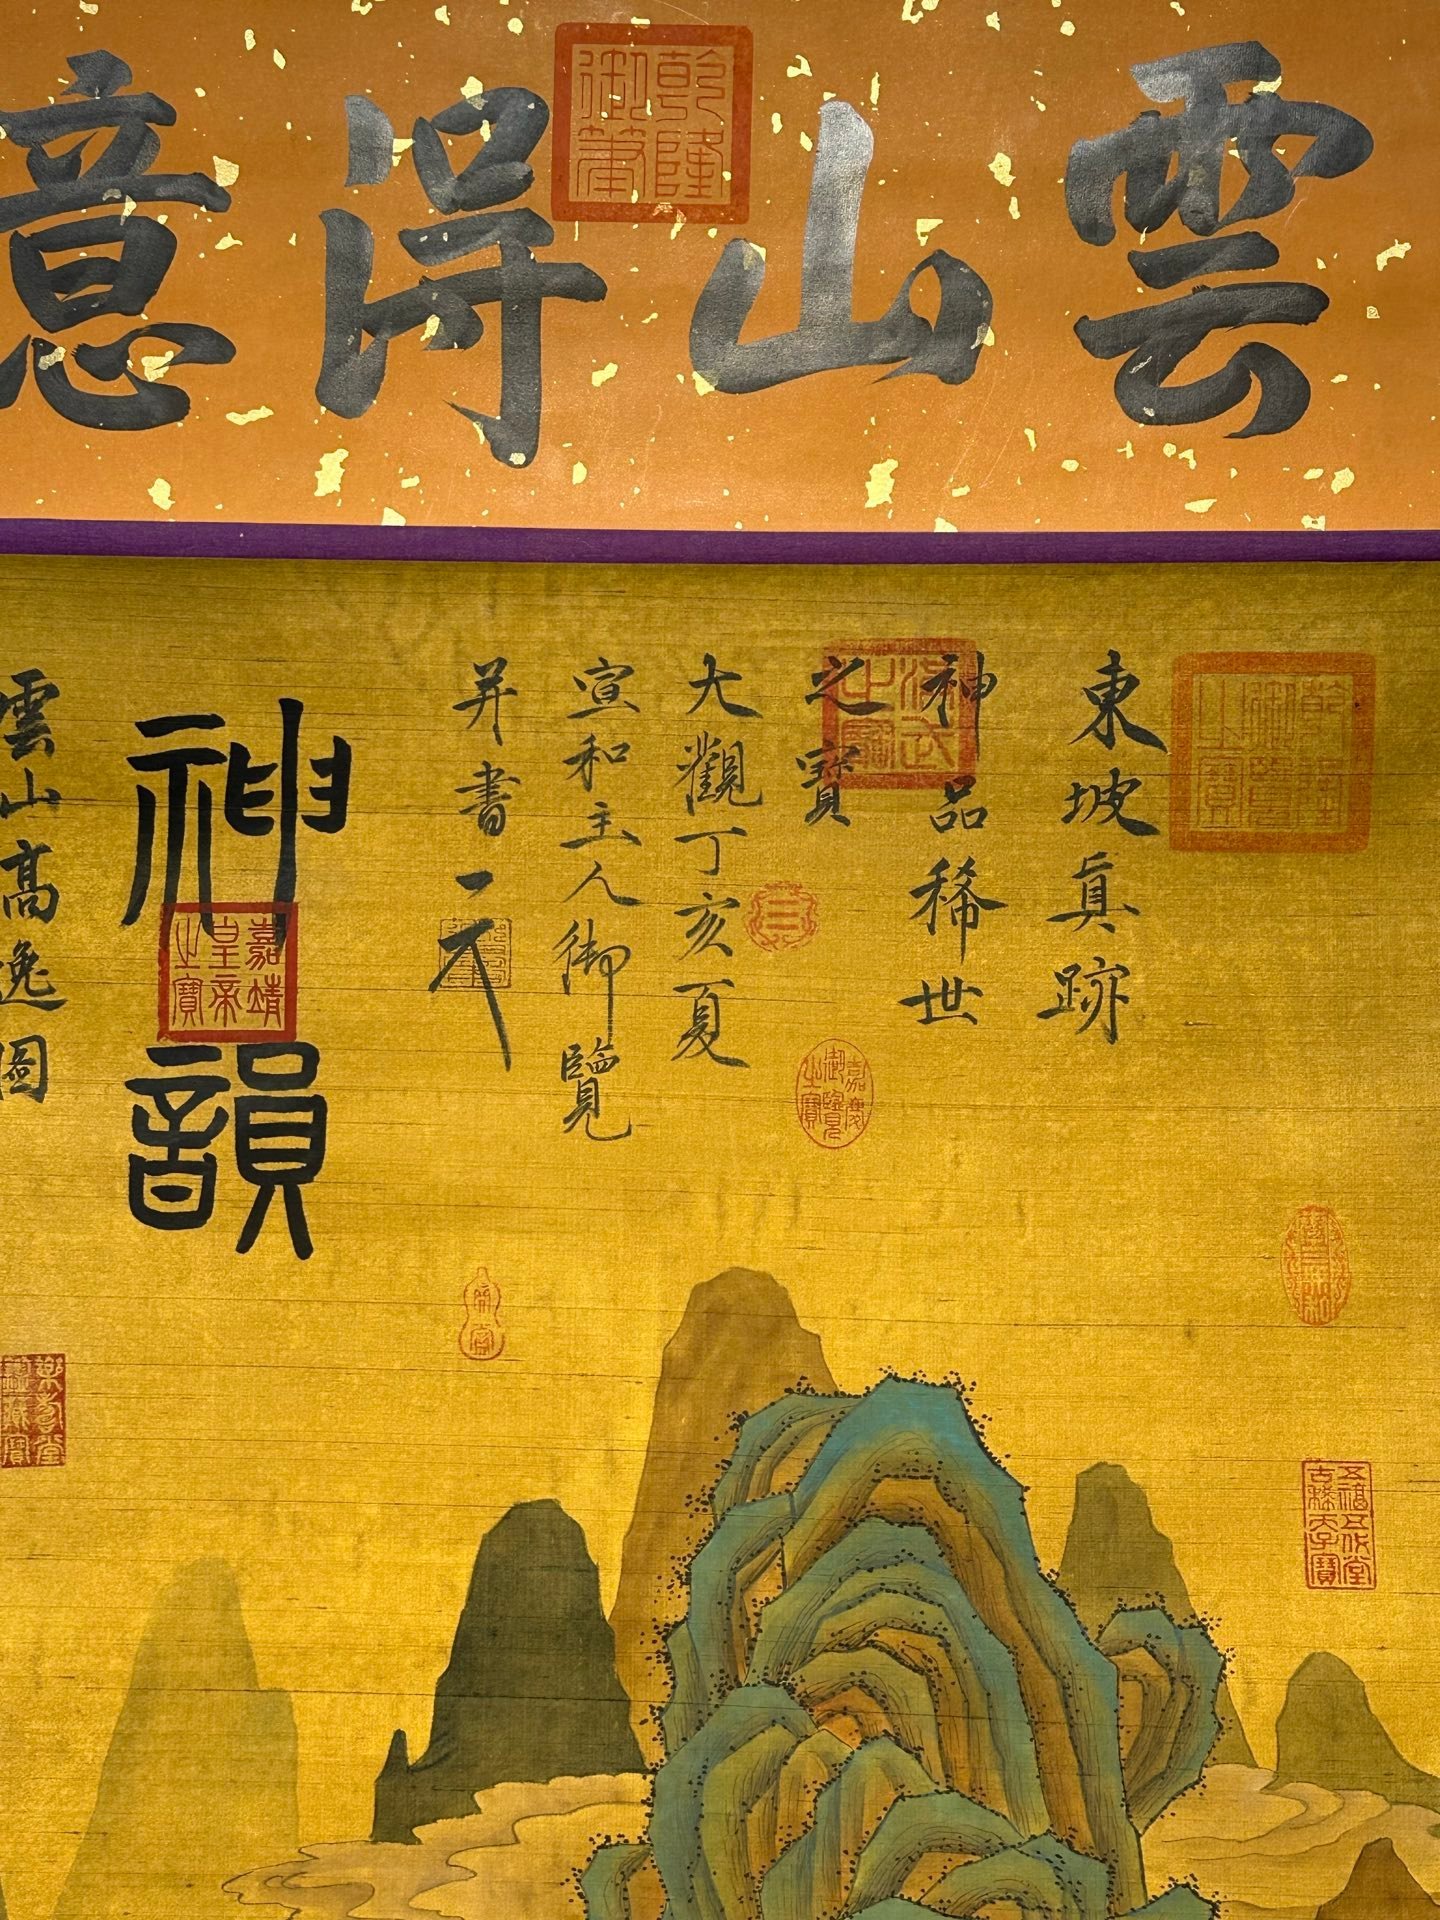 雲山得意
乾隆御筆
乾隆御覽之寶
東坡真跡
神品稀世
之寶
大觀丁亥夏
宣和主人御覽
并書
神韻
雲山高逸圖
嘉靖皇帝之寶
嘉慶御覽之寶
五福五代堂古稀天子寶
樂壽堂鑑藏寶